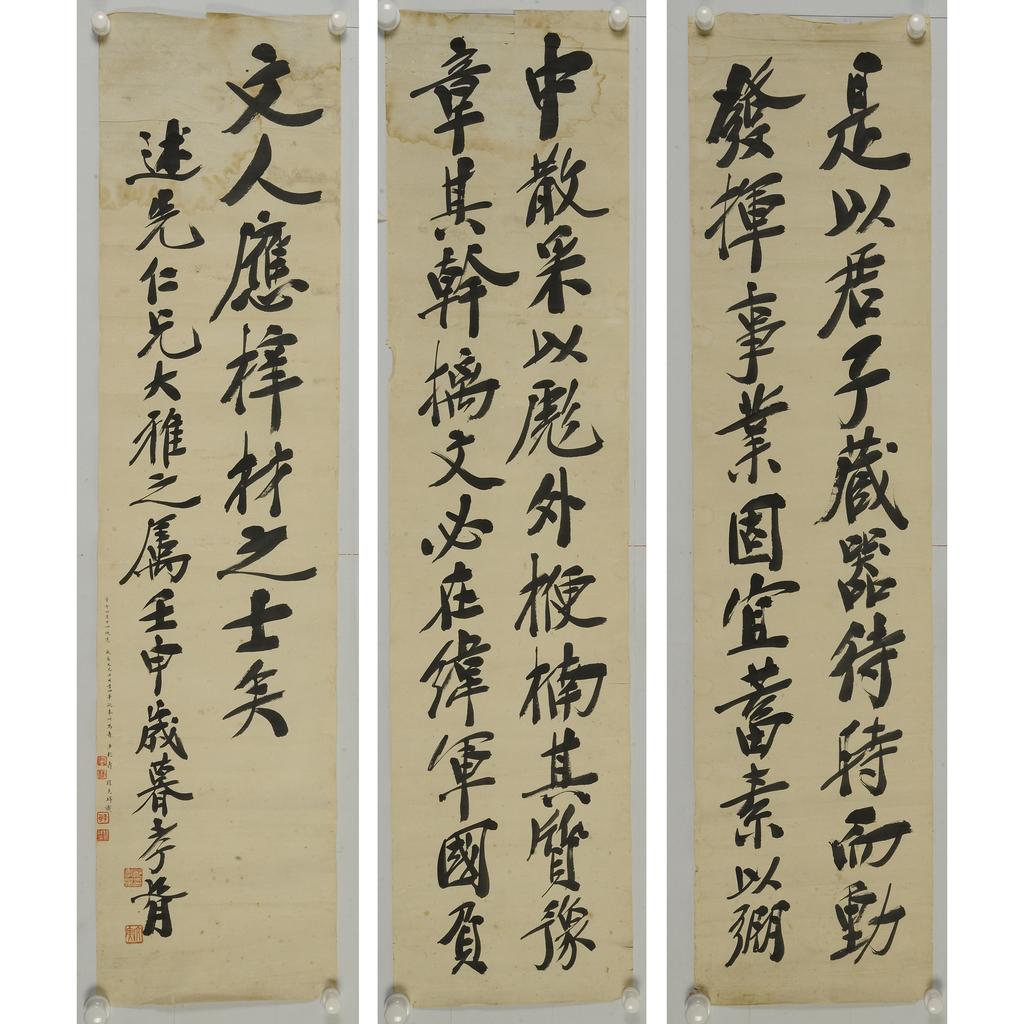 是以君子藏器待時而動
發揮事業固宜蓄素以弸
中散采以彪外楩楠其質豫
章其幹摛文必在緯軍國負
文人應梓材之士矣
述先仁兄大雅之屬壬申歲暮孝胥